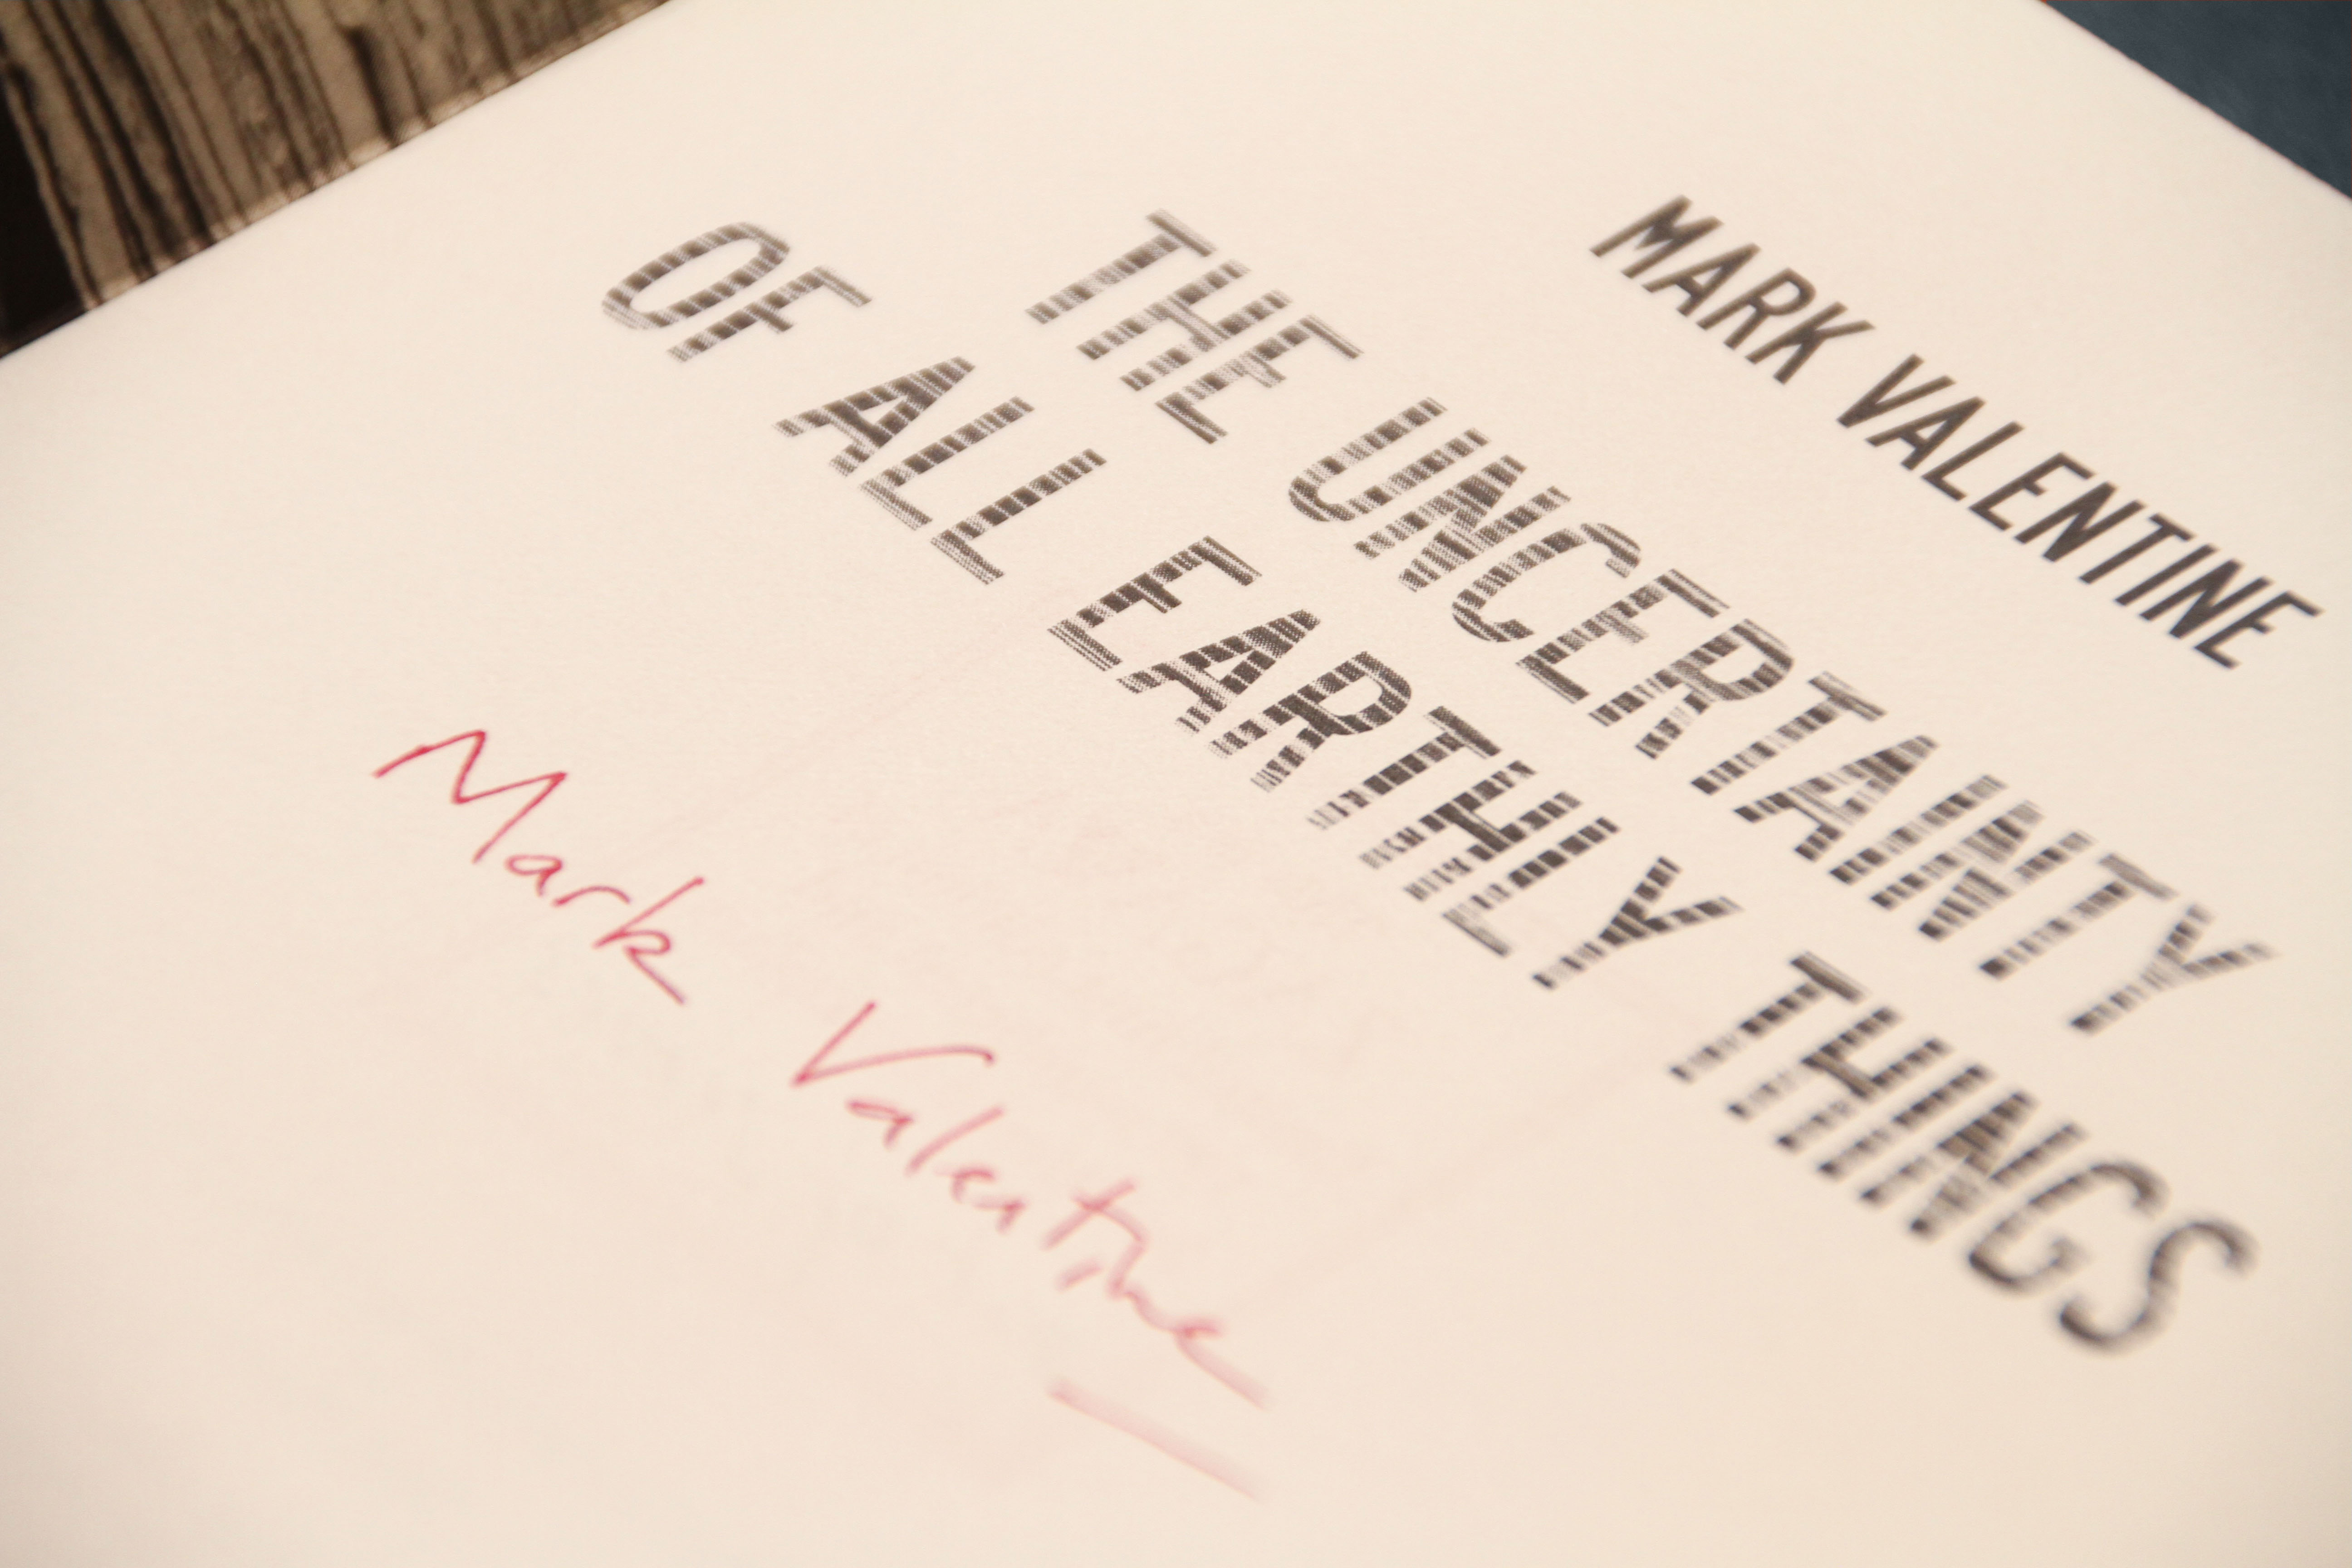 MARK VALENTINE
THE UNCERTAINTY
OF ALL EARTHLY THINGS
Mark Valentine